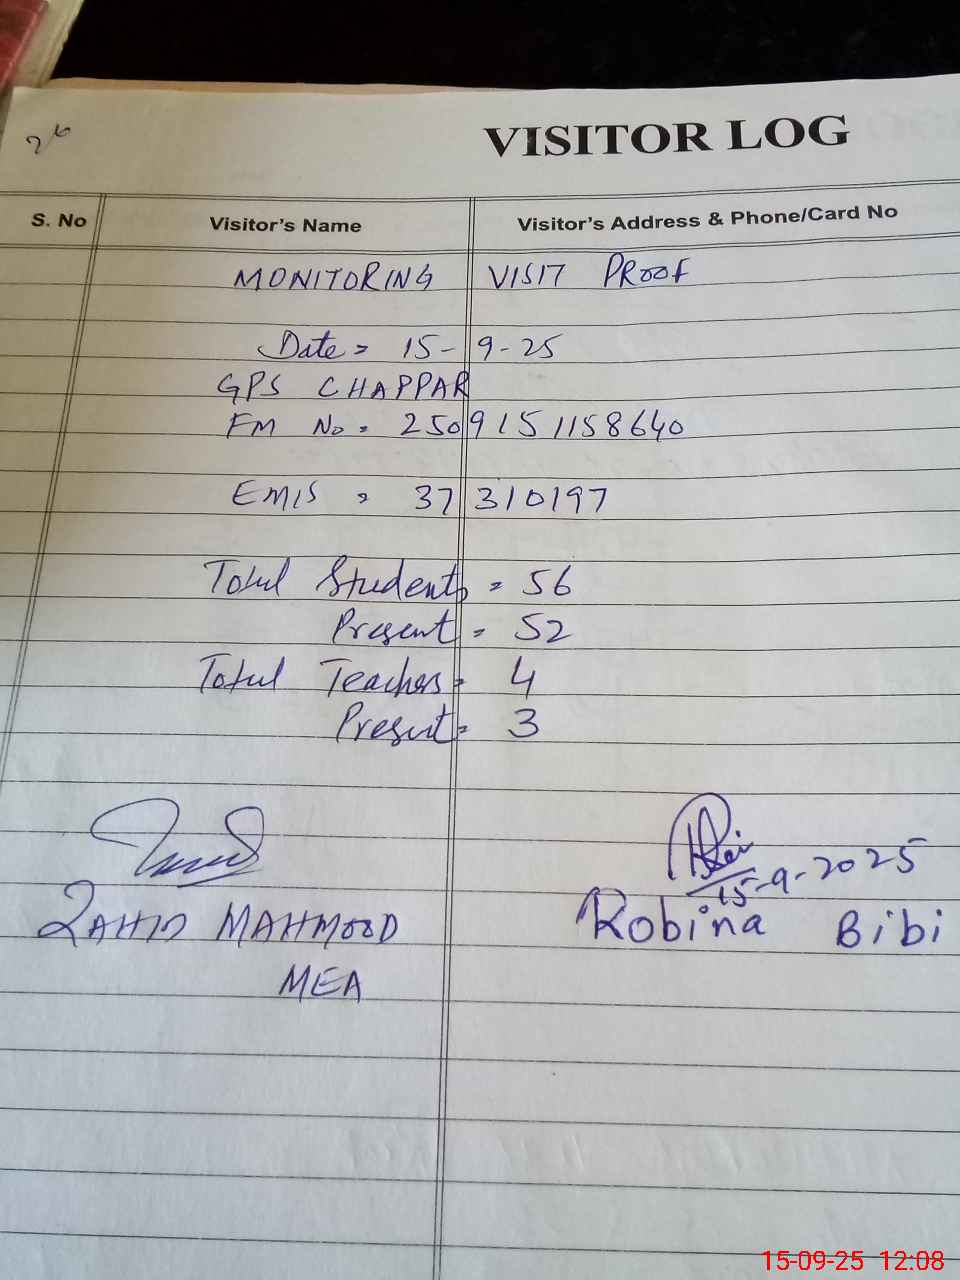 26
VISITOR LOG
S. No Visitor's Name Visitor's Address & Phone/Card No
MONITORING VISIT PROOF
Date = 15-9-25
GPS CHAPPAR
FM No = 2509151158640
EMIS = 37310197
Total Students = 56
Present = 52
Total Teachers = 4
Present = 3
15-9-2025
ZAHID MAHMOOD Robina Bibi
MEA
15-09-25 12:08